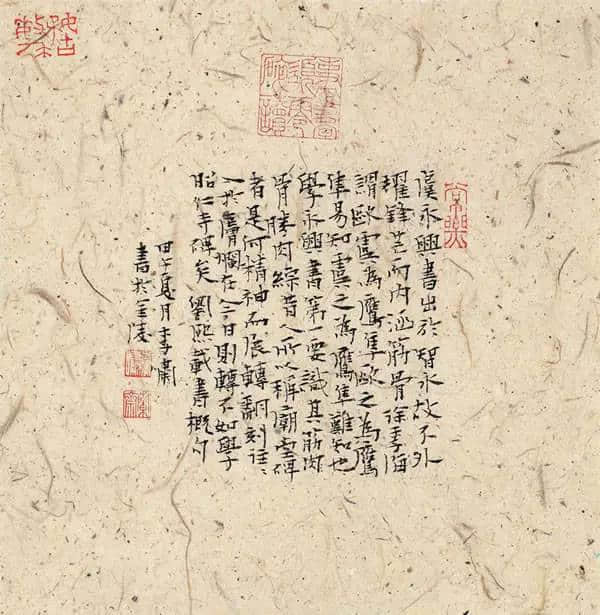 虞永興書出於智永故不外
耀鋒芒而内涵筋骨徐季海
謂歐虞為鷹隼歐之為鷹
隼易知虞之為鷹隼難知也
學永興書第一要識其筋肉
骨勝肉綜昔人所以稱廟堂碑
者是何精神而展轉翻刻往〻
入於膚爛在今日則轉不如學
昭仁寺碑矣 劉熙載書概句
甲午夏月李嘯
書於金陵